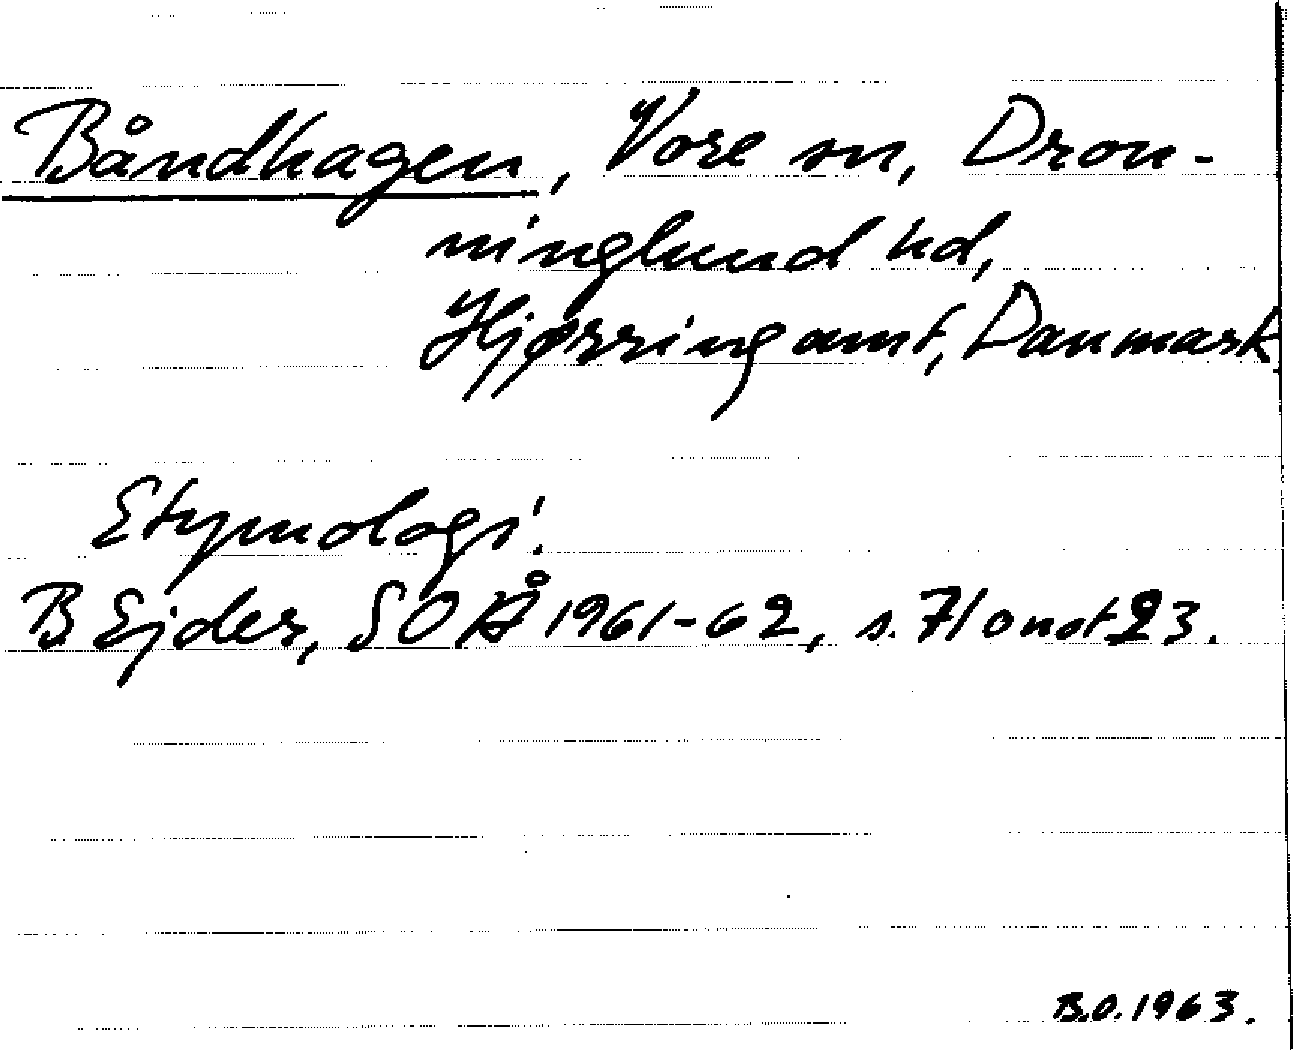 Båndhagen, Vore sn, Dron-
ninglund hd,
Hjørring amt, Danmark.
Etymologi:
B Ejder, SOÅ 1961-62, s. 71 o not 23.
B.O. 1963.